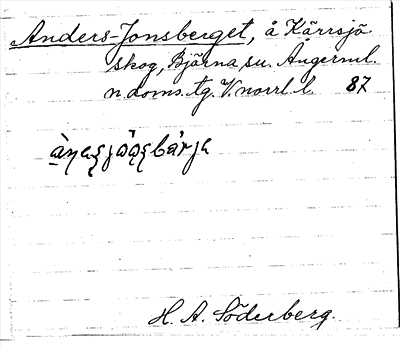 Anders-Jonsberget, å Kärrsjö
skog, Bjärna su. Ångerml.
n doms. tg. V.norrl. l. 87
H. A. Söderberg.